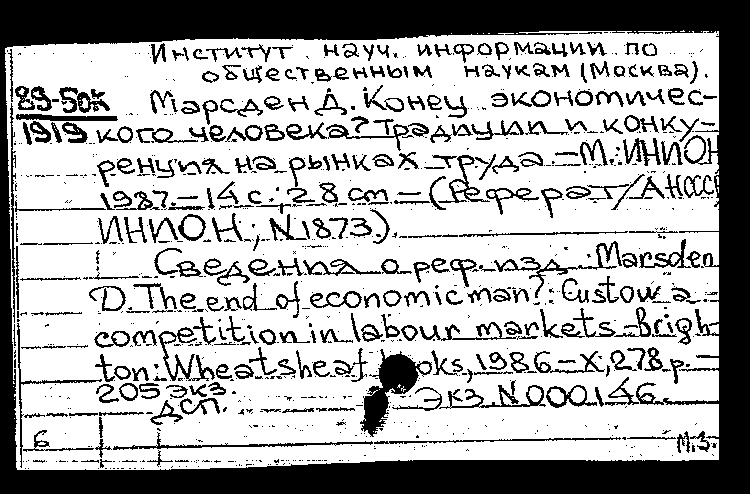 Институт науч. информации по
общественным наукам (Москва).
89-50к Марсден Д. Конец экономичес-
1919 кого человека? Традиции и конку-
ренция на рынках труда – М.: ИНИОН
1987. – 14 с.; 28 cm – (Реферат/АНСССР
ИНИОН; N1873).
Сведения о реф. изд.: Marsden
D. The end of economic man?: Custow a
competition in labour markets – Brigh-
ton: Wheatsheaf books, 1986 – X, 278 p. –
205 экз. Экз. N000146.
ДСП.
6 М.З.